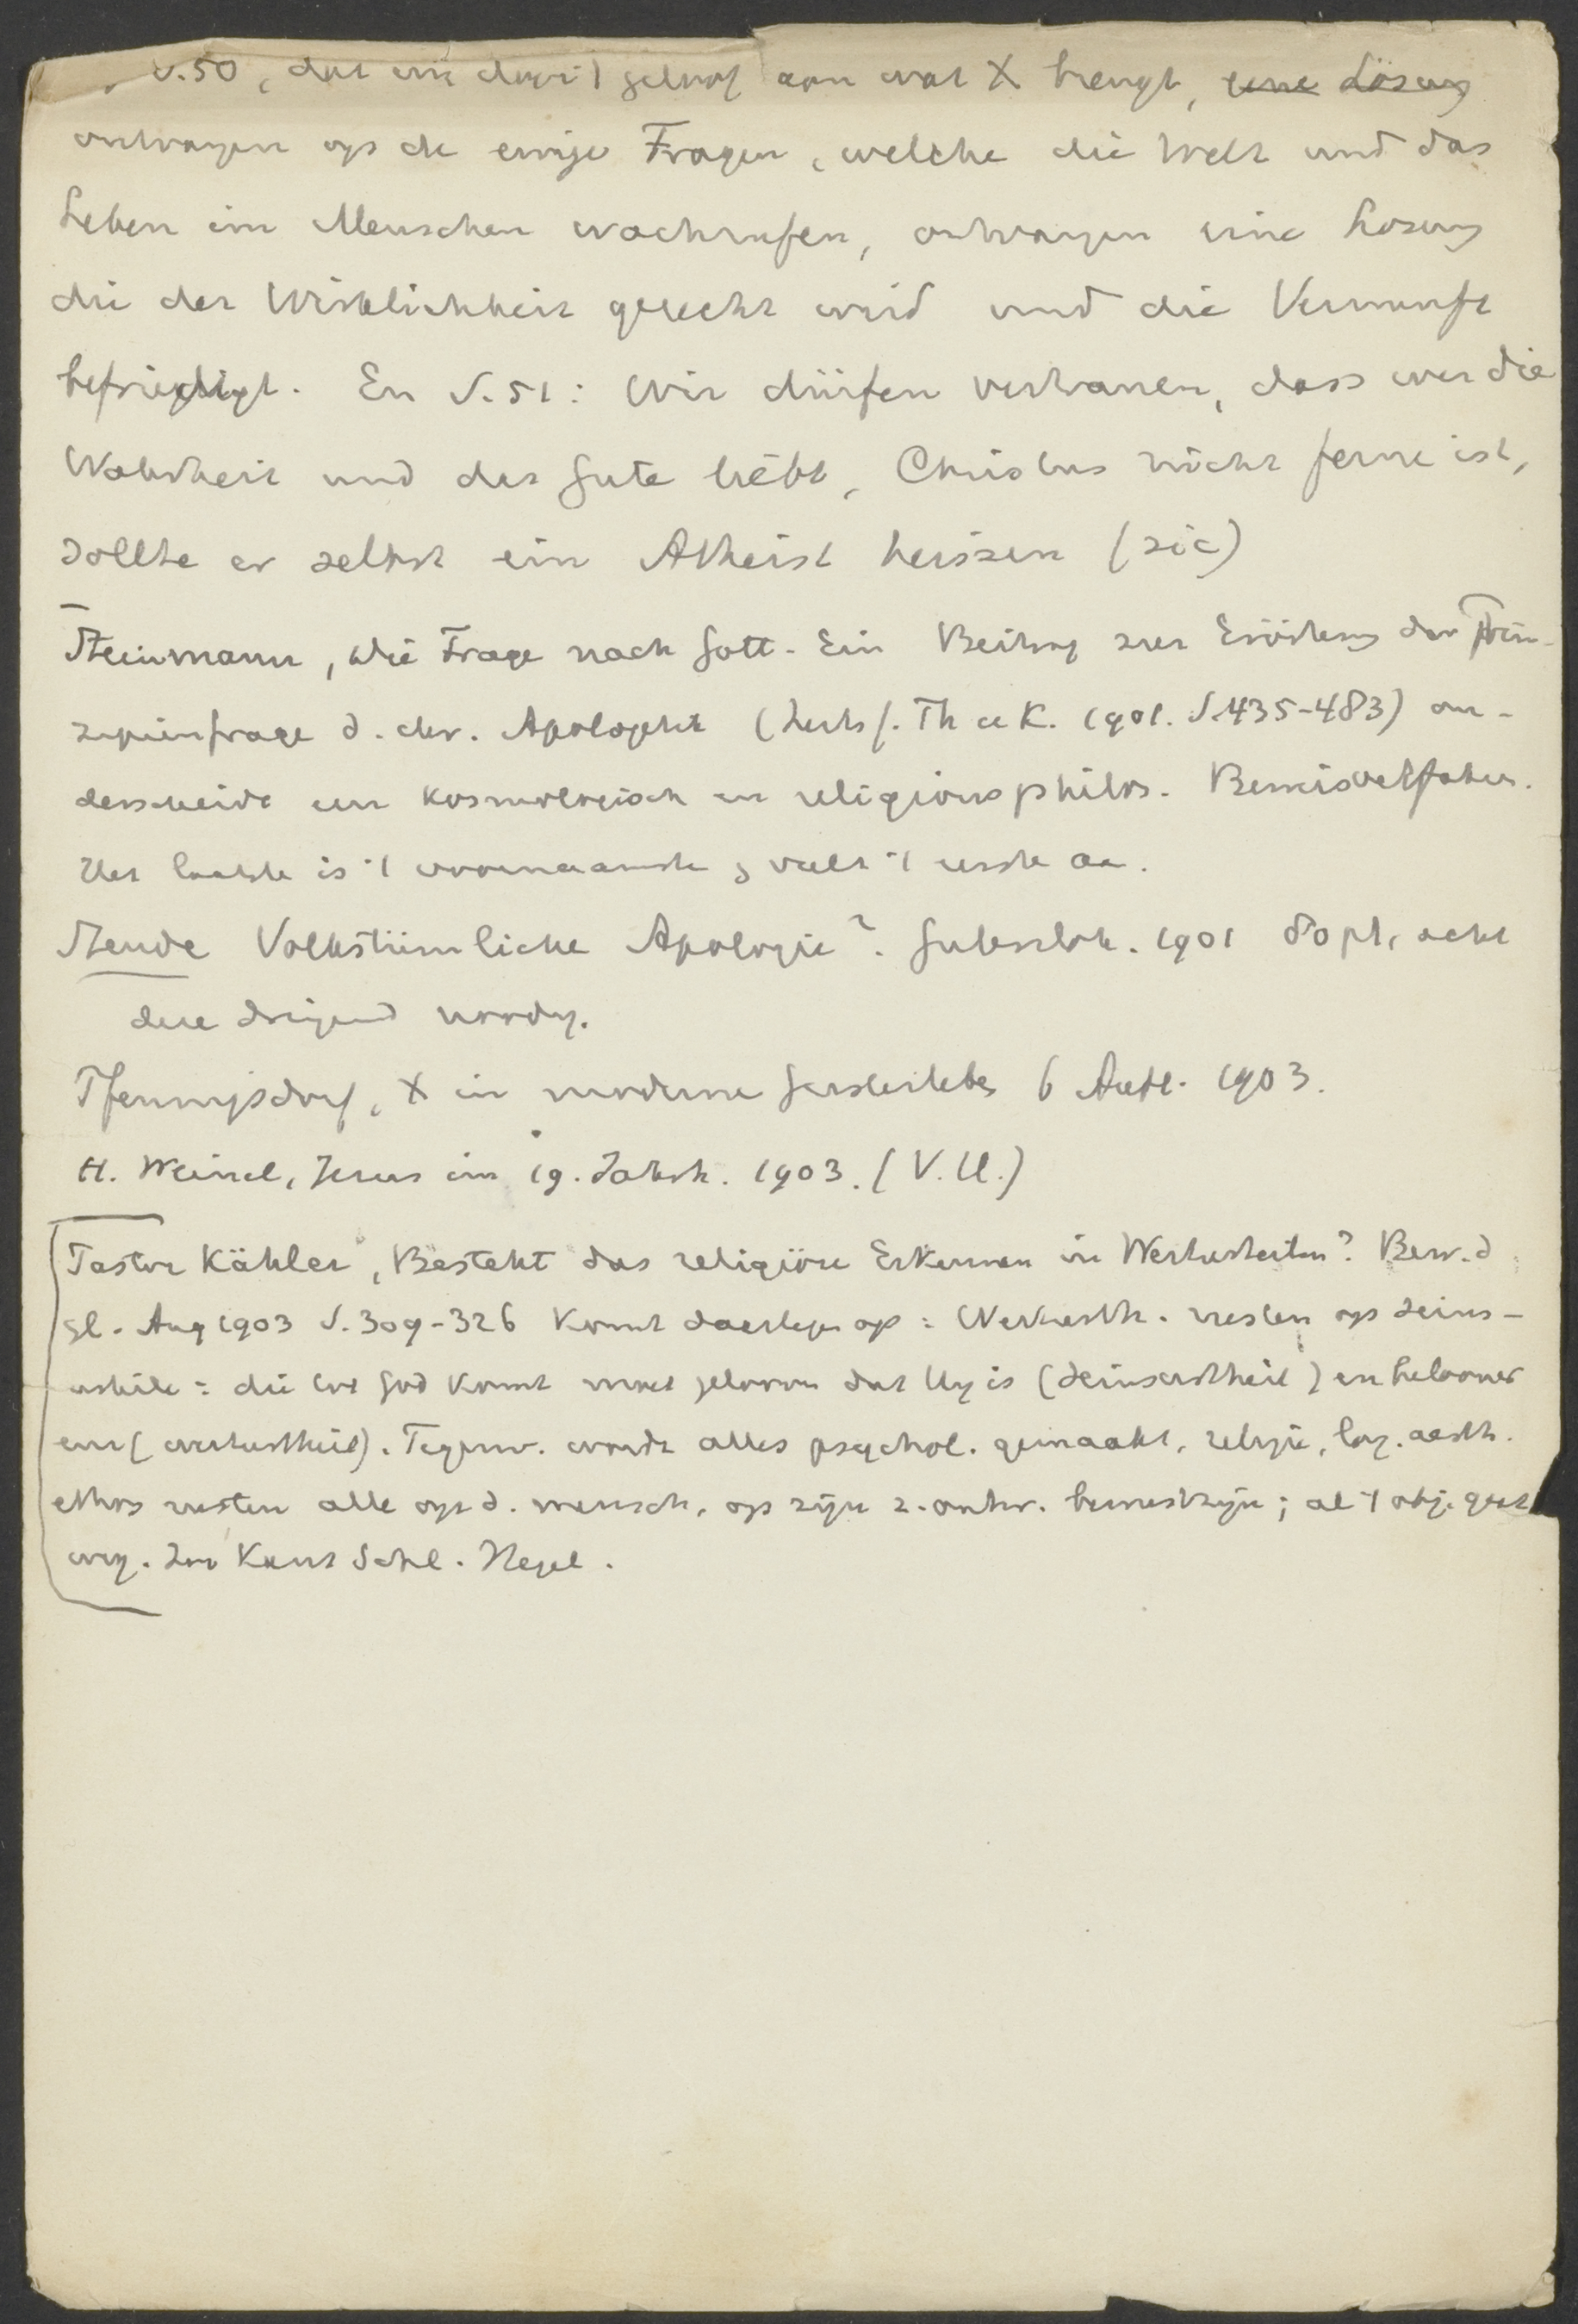 S. 50, dat wie door 't geloof aan wat X brengt, eine Lösung
ontvangen op de ewige Fragen, welche die Welt und das
Leben im Menschen wachrufen, ontvangen eine Losung
die der Wirklichkeit gerecht wird und die Vernunft
befriedigt. En S. 51: Wir dürfen vertrauen, dass wer die
Wahrheit und das Gute liebt, Christus nicht ferne ist,
sollte er selbst ein Atheist heiszen (sic)
Steinmann, Die Frage nach Gott. Ein Beitrag zur Erörterg der Prin-
zipienfrage d. chr. Apologetik (Zeits f. Th u K. 1901. S. 435-483) on-
derscheidt een kosmologisch en religionsphilos. Beweisverfahren.
Het laatste is 't voornaamste; vult 't eerste aan.
Steude Volkstümliche Apologie? Gutersloh. 1901 80 pf, acht
deze dringend noodig.
Pfennigsdorf, X im moderne Geistesleben 6 Aufl. 1903.
H. Weinel, Jesus im 19. Jahrh. 1903. (V.U.)
Pastor Kähler, Besteht das religiöse Erkennen in Werturteilen? Bew. d
Gl. Aug 1903 S. 309-326 Komt daartegen op: Werturth. rusten op Seins-
urteile: die tot God komt moet gelooven dat Hij is (Seinsurtheil) en belooner
enz (werturtheil). Tegenw. wordt alles psychol. gemaakt, religie, log. aesth.
ethos rusten alle op d. mensch, op zijn z. ontw. bewustzijn; al 't obj. gaat
weg. Zoo Kant Schl. Hegel.